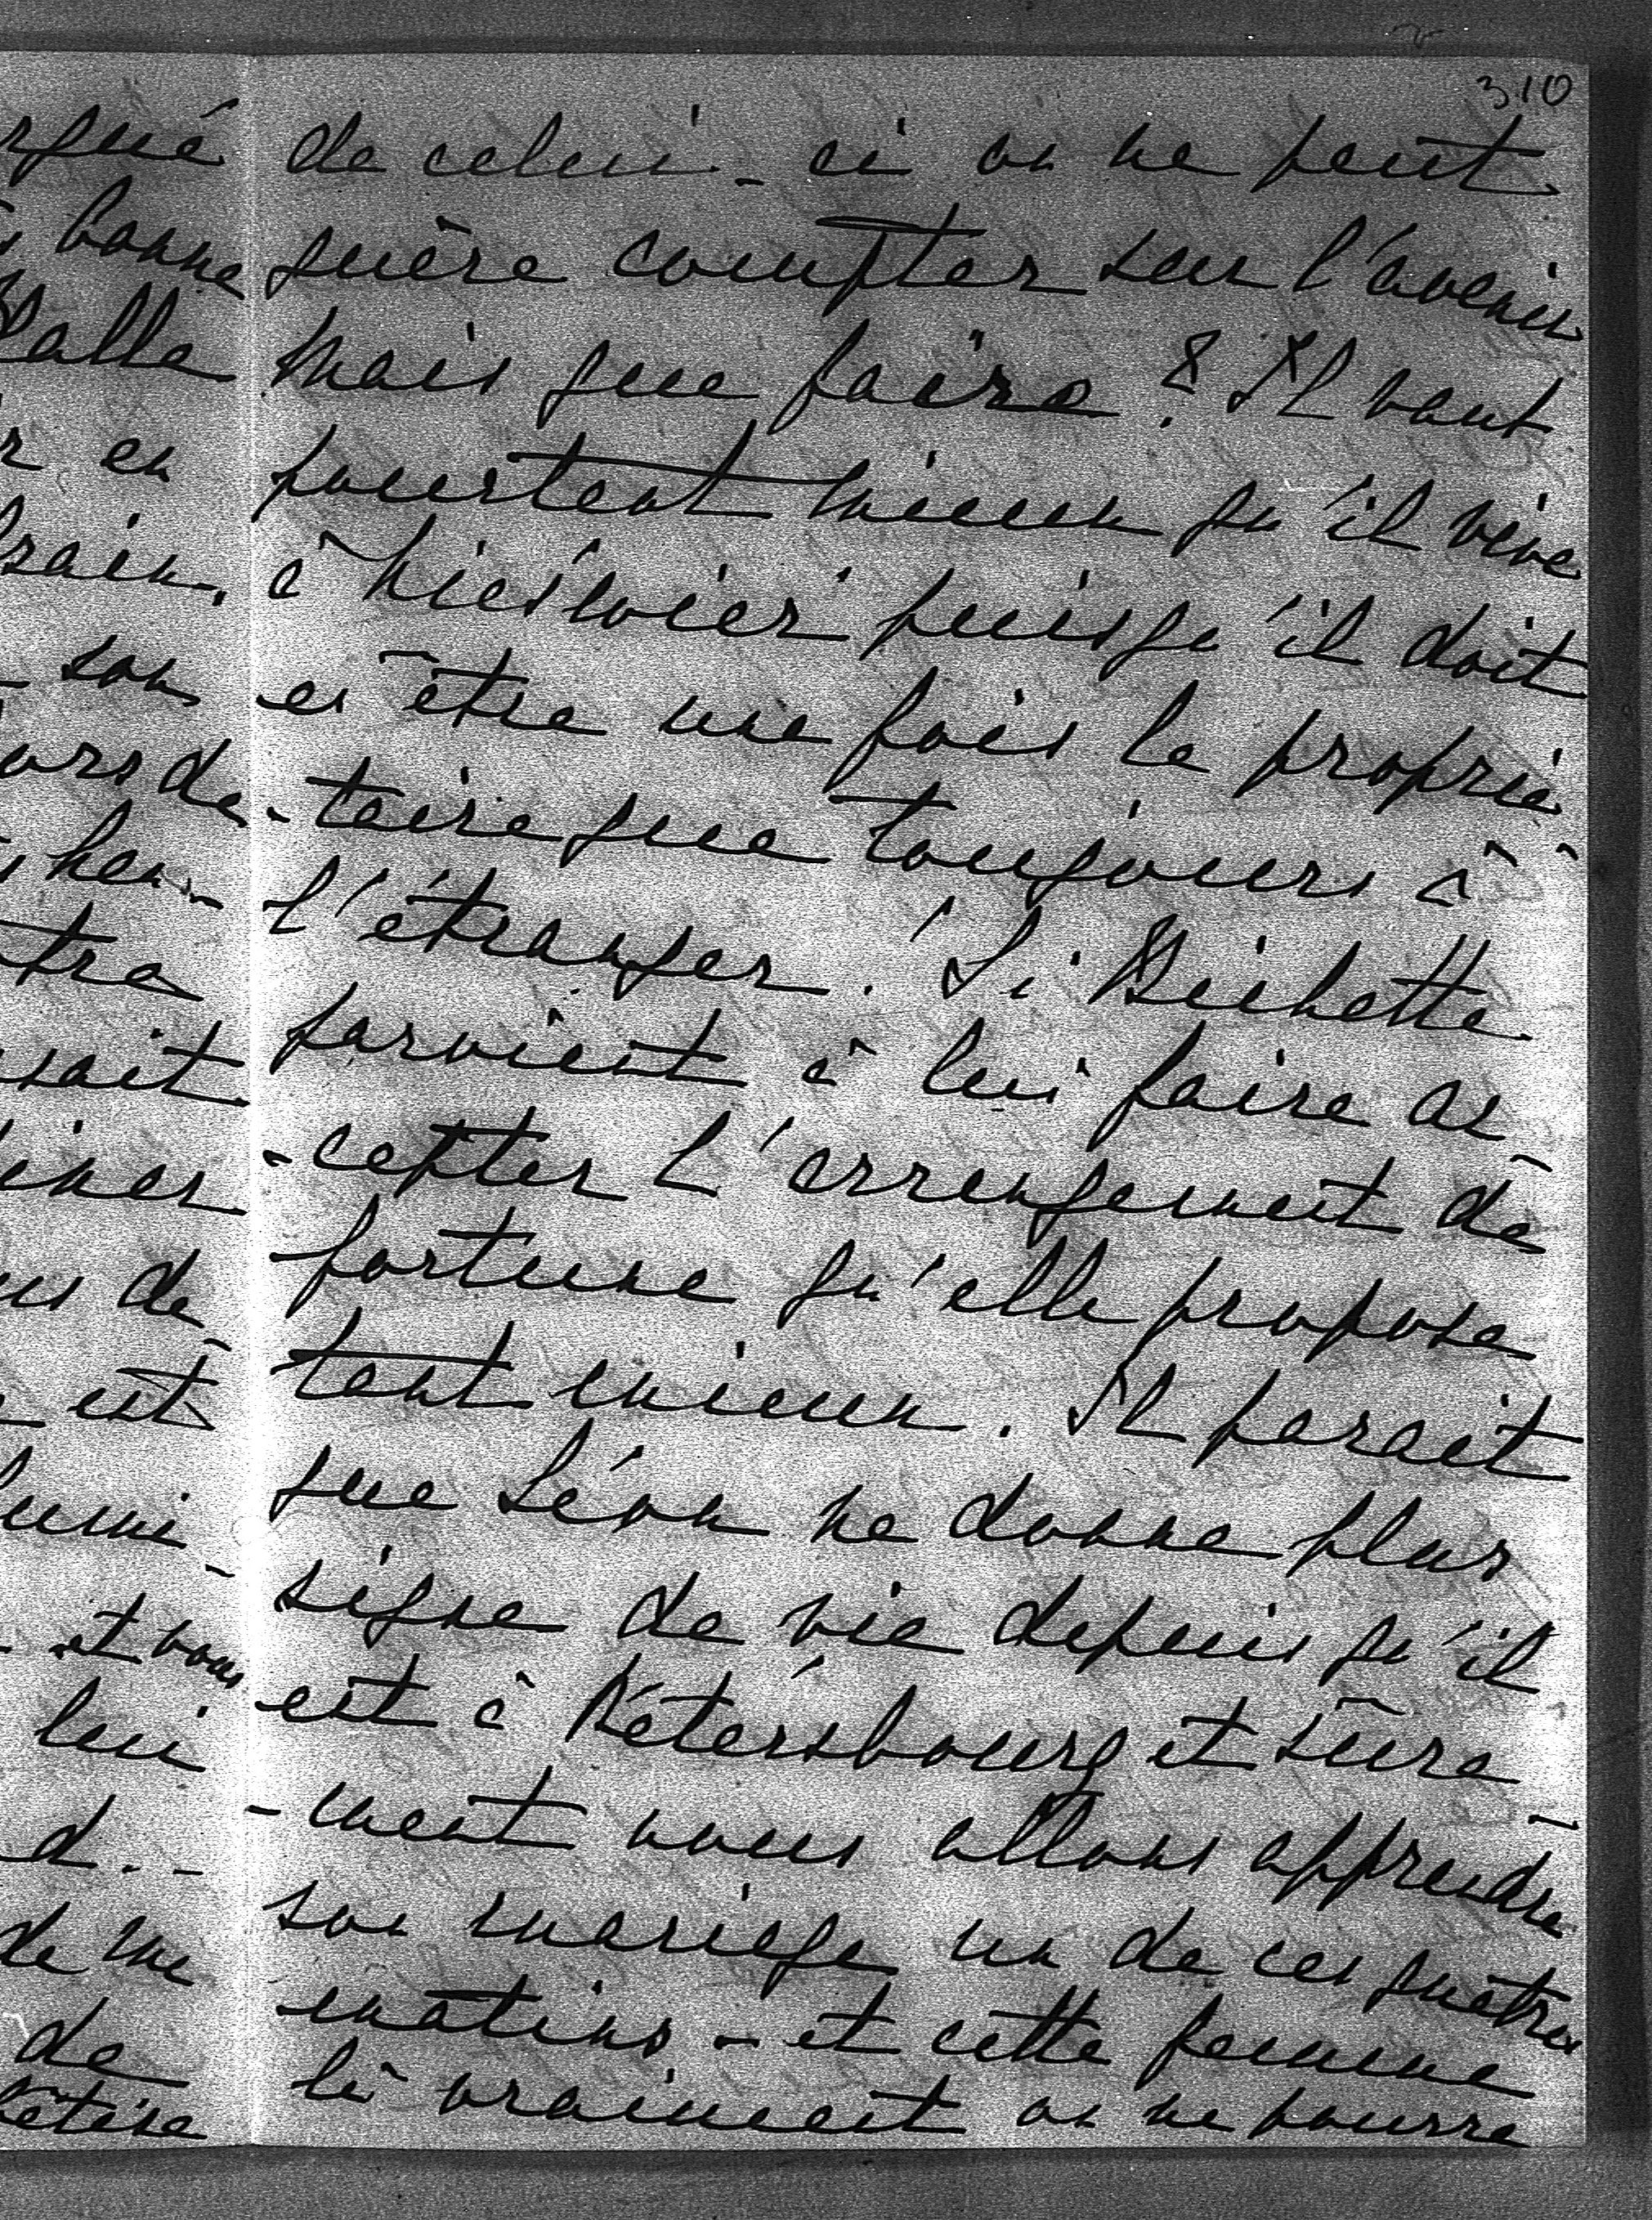 310
de celui-ci on ne peut
guère compter sur l'avenir
mais que faire? Il vaut
pourtant mieux qu'il vive
à puisqu'il doit
en être une fois le proprié
-taire que toujours à
l'étranger. Si Bichette
parvient à lui faire ac
-cepter l'arrangement de
fortune qu'elle propose
tant mieux. Il parait
que Léon ne donne plus
signe de vie depuis qu'il
est à Pétersbourg et sûre
-ment nous allons apprendre
son mariage un de ces quatre
matins - et cette femme
là vraiment on ne pourra
bonne
en
son
de
est
et vous
lui
d. -
de me
de